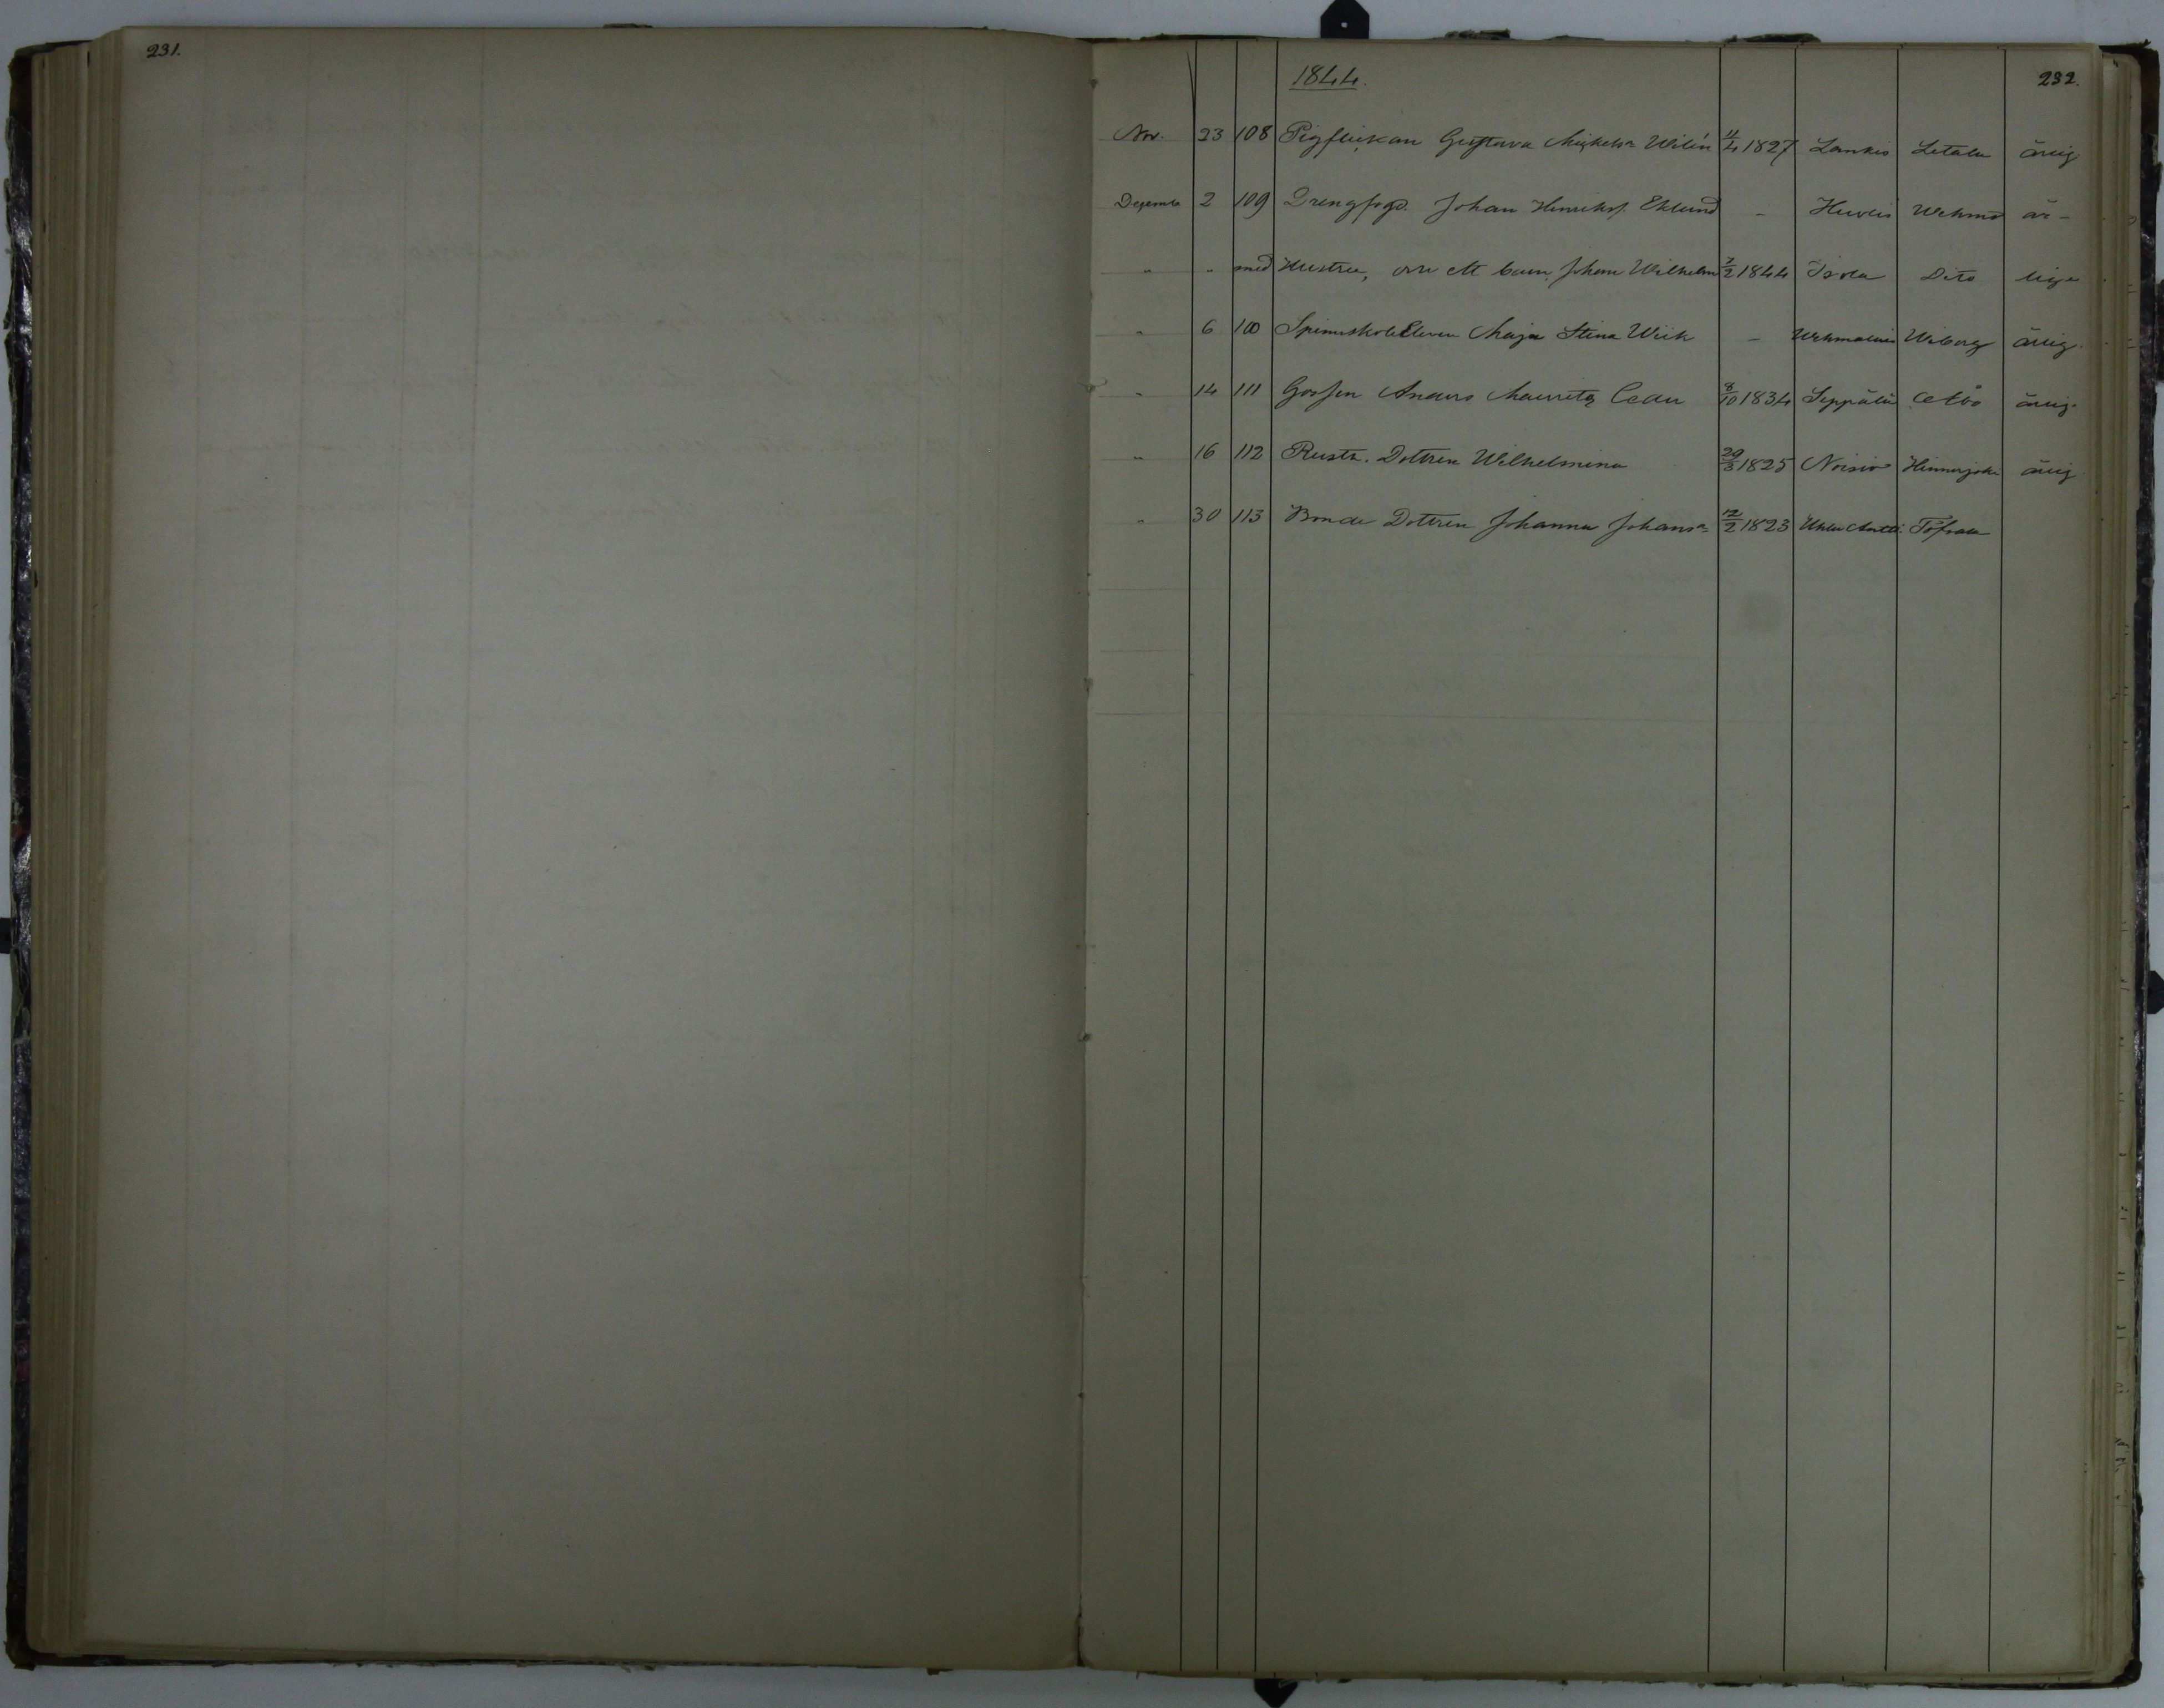 231.
1844. 232.
Nov. 23 108 Pigflickan Gustava Mickelsr Wilén 4/4 1827 Lankis Letala ärlig
Decemb 2 109 Drengfogd. Johan Henrikss. Eklund - Huvlis Wehmo är-
" " med Hustru, och ett barn, Johan Wilhelm 7/2 1844 Isota Dito lige
" 6 100 Spinnskole Eleven Maja Stina Wiik - Wiborg ärlig.
" 14 111 Gossen Anders Mauritz Ceder 8/10 1834 Seppälä Åbo ärlig.
" 16 112 Rustr. Dottren Wilhelmina 29/3 1825 Noisio Hinnerjoki ärlig
" 30 113 Bonde Dottren Johanna Johansr 12/2 1823 Antti Töfsala